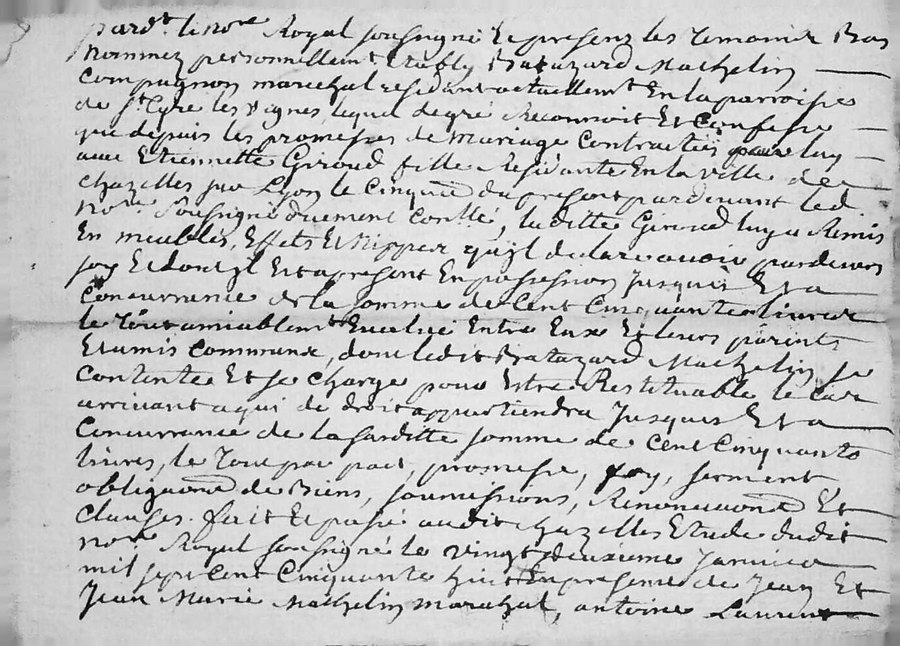 pardt le nore Royal soussigné Et presens les temoins Bas
nommez personnellemt Etably Batazard Mathelin
Compagnon marechal residant actuellemt En la parroisse
de St Cyre les vignes, lequel de gré Reconnoit Et Confesse
que depuis les promesses de mariage Contractées par luy
avec Etiennette Giroud fille Residante En la ville de
chazelles sur Lyon le Cinquem du present pardevant led
nore soussigné duement Conllé, laditte Giroud luy a Remis
En meubles, Effets Et Nippes qu'yl declare avoir pardevers
soy Et dont yl Est a present En possession Jusques Et a
Concurrance de la somme de Cent Cinquante livres
le tout amiablemt Evalué Entre Eux Et leurs parents
Et amis communs, dont ledit Batazard Mathelin se
Contente Et se charge pour Estre Restituable le cas
arrivant a qui de droit appartiendra Jusques Et a
Concurrance de la susditte somme de Cent Cinquante
livres, le tout par pact, promesse, foy, serment
obligaond de Biens, soumissions, Renonciaond Et
Clauses. fait Et passé audit chazelles Etude dudit
nore Royal soussigné le vingt deuxieme Janvier
mil sept Cent Cinquante huit En presence de Jean Et
Jean Marie Mathelin marechal, antoine Laurent